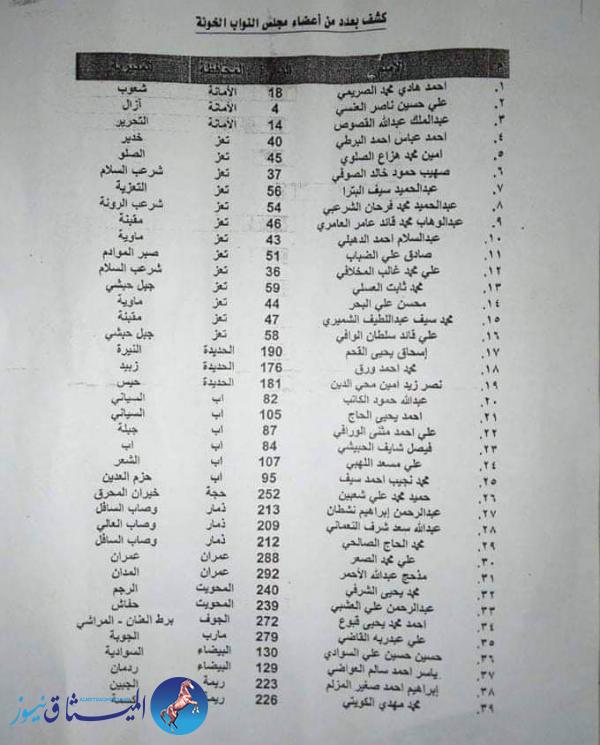 كشف بعدد من أعضاء مجلس النواب الخونة
م الاسم المحافظة المديرية
١. احمد هادي محمد الصريمي 18 الأمانة شعوب
٢. علي حسين ناصر العنسي 4 الأمانة آزال
٣. عبدالملك عبدالله القصوص 14 الأمانة التحرير
٤. احمد عباس احمد البرطي 40 تعز خدير
٥. امين محمد هزاع الصلوي 45 تعز الصلو
٦. صهيب حمود خالد الصوفي 37 تعز شرعب السلام
٧. عبدالحميد سيف البترا 56 تعز التعزية
٨. عبدالحميد محمد فرحان الشرعبي 54 تعز شرعب الرونة
٩. عبدالوهاب محمد قائد عامر العامري 46 تعز مقبنة
١٠. عبدالسلام احمد الدهبلي 43 تعز ماوية
١١. صادق علي الضباب 51 تعز صبر الموادم
١٢. علي محمد غالب المخلافي 36 تعز شرعب السلام
١٣. محمد ثابت العسلي 59 تعز جبل حبشي
١٤. محسن علي البحر 44 تعز ماوية
١٥. محمد سيف عبداللطيف الشميري 47 تعز مقبنة
١٦. علي قائد سلطان الوافي 58 تعز جبل حبشي
١٧. إسحاق يحيى القحم 190 الحديدة النيرة
١٨. محمد احمد ورق 176 الحديدة زبيد
١٩. نصر زيد امين محي الدين 181 الحديدة حيس
٢٠. عبدالله حمود الكاتب 82 اب السياني
٢١. احمد يحيى الحاج 105 اب السياني
٢٢. علي احمد مثنى الورافي 87 اب جبلة
٢٣. فيصل شايف الحبيشي 84 اب اب
٢٤. علي مسعد اللهبي 107 اب الشعر
٢٥. محمد نجيب احمد سيف 95 اب حزم العدين
٢٦. حميد محمد علي شعبين 252 حجة خيران المحرق
٢٧. عبدالرحمن إبراهيم نشطان 213 ذمار وصاب السافل
٢٨. عبدالله سعد شرف النعماني 209 ذمار وصاب العالي
٢٩. محمد الحاج الصالحي 212 ذمار وصاب السافل
٣٠. علي محمد الصعر 288 عمران عمران
٣١. مذحج عبدالله الأحمر 292 عمران المدان
٣٢. محمد يحيى الشرفي 240 المحويت الرجم
٣٣. عبدالرحمن علي العشبي 239 المحويت حفاش
٣٤. احمد محمد يحيى قبوع 272 الجوف برط العنان - المراشي
٣٥. علي عبدربه القاضي 279 مارب الجوبة
٣٦. حسين حسين علي السوادي 130 البيضاء السوادية
٣٧. ياسر احمد سالم العواضي 129 البيضاء ردمان
٣٨. إبراهيم احمد صغير المزلم 223 ريمة الجبين
٣٩. محمد مهدي الكويتي 226 ريمة
الميثاق نيوز